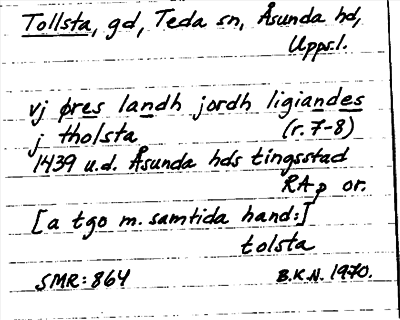 Tollsta, gd, Teda sn, Åsunda hd,
Uppsl.
vj øres landh jordh ligiandes
j tholsta (r. 7-8)
1439 u.d. Åsunda hds tingsstad
RAp or.
[a tgo m. samtida hand:]
tolsta
SMR: 864 B.K.N. 1970.